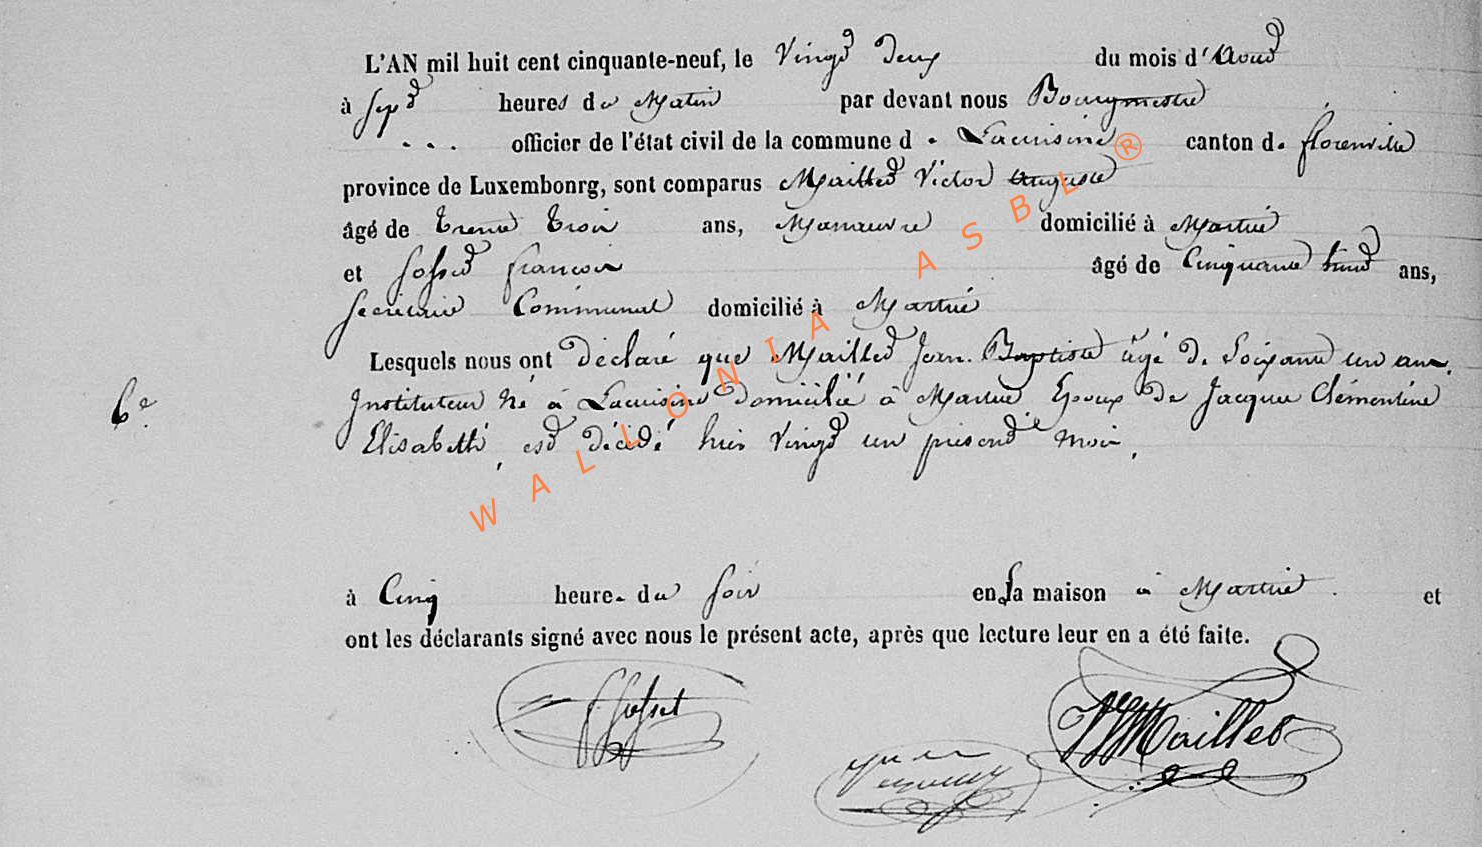 L'AN mil huit cent cinquante-neuf, le Vingt Deux du mois d'Aout
à sept heures du Matin par devant nous Bourgmestre
... officier de l'état civil de la commune d. Lacuisine canton d. florenville
province de Luxembonrg, sont comparus Maillet Victor Auguste
âgé de trente trois ans, Manœuvre domicilié à Martué
et Gosset françois âgé de Cinquante huit ans,
secretaire Communal domicilié à Martué
Lesquels nous ont déclaré que Maillet Jean-Baptiste âgé de Soixante un ans,
6e
Instituteur né à Lacuisine domicilié à Martué Epoux de Jacques Clémentine
Elisabeth, est décédé hier vingt un présent mois,
à Cinq heure. du soir en sa maison à Martué. et
ont les déclarants signé avec nous le présent acte, après que lecture leur en a été faite.
Gosset
Maillet
WALLONIA ASBL ®